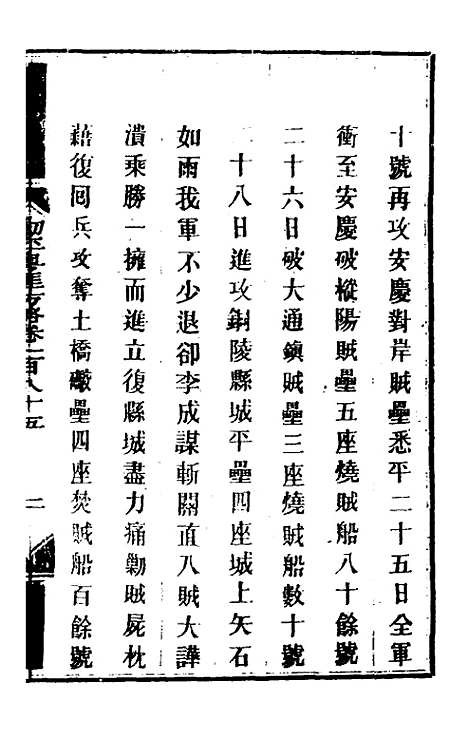 十號再攻安慶對岸賊壘悉平二十五日全軍
衝至安慶破樅陽賊壘五座燒賊船八十餘號
二十六日破大通鎭賊壘三座燒賊船數十號
二十八日進攻銅陵縣城平壘四座城上矢石
如雨我軍不少退卻李成謀斬關直入賊大譁
潰乘勝一擁而進立復縣城盡力痛勦賊屍枕
藉復囘兵攻奪土橋礮壘四座焚賊船百餘號
方略卷一百八十五
二